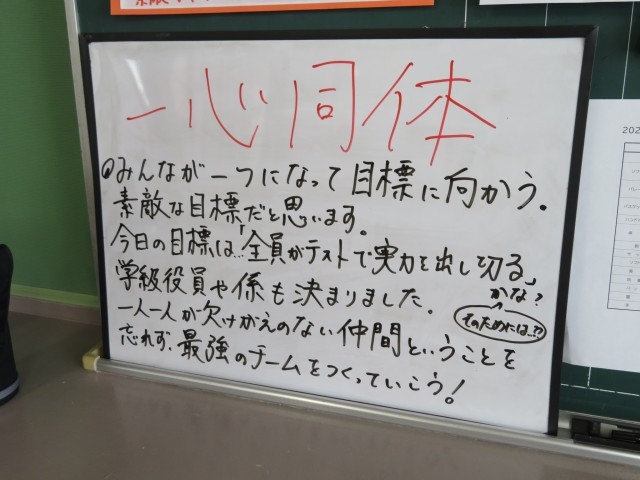 一心同体
•みんなが一つになって目標に向かう。
素敵な目標だと思います。
今日の目標は…「全員がテストで実力を出し切る」
かな？
学級役員や係も決まりました。
そのためには…??
一人一人が欠けがえのない仲間ということを
忘れず、最強のチームをつくっていこう！
202